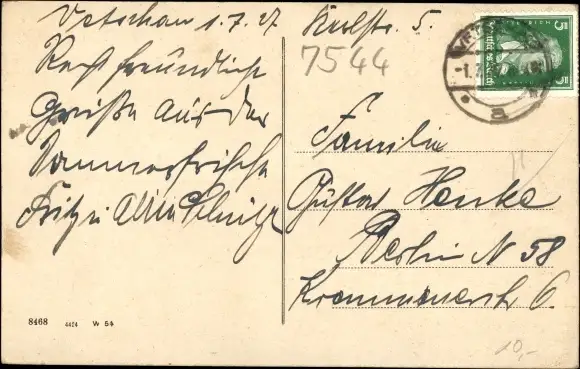 Vetschau 1.7.27 Karlstr. 5.
7544
Recht freundliche
Grüße aus der
Sommerfrische
Fritz u.
Familie
Gustav Henke
Berlin N 58
6.
5 Deutsches Reich 5
a
8468 4424 W 54
10,-